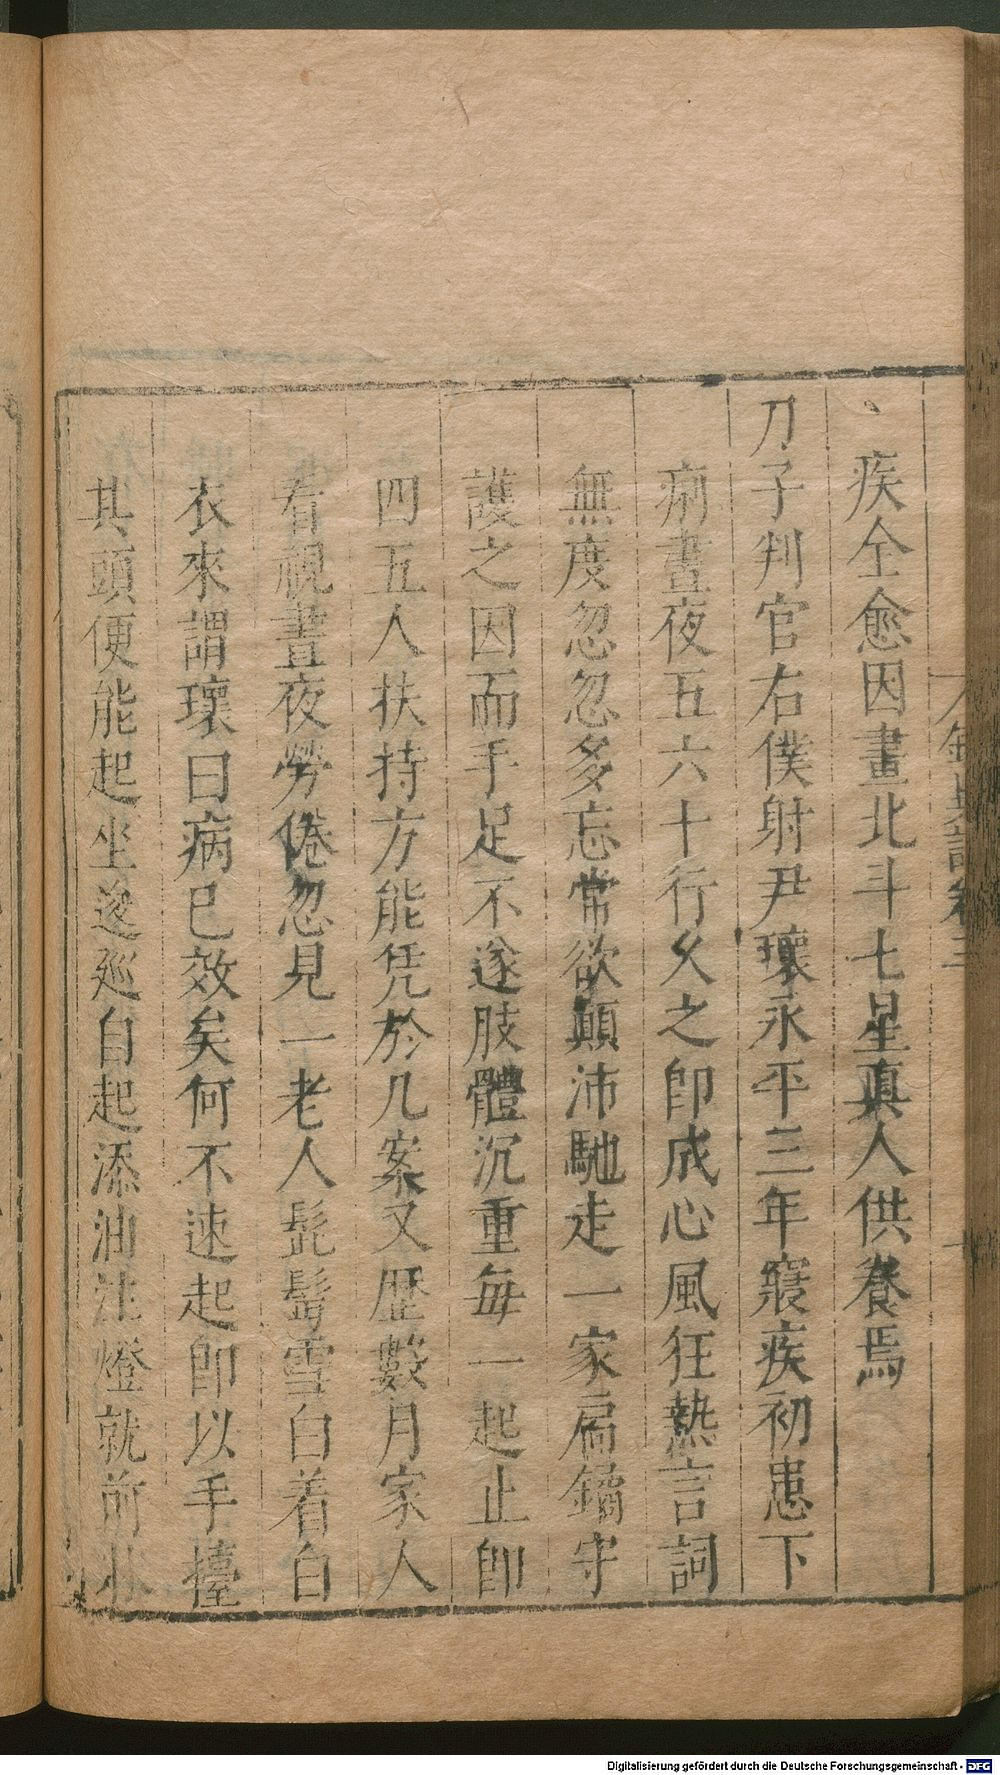 疾全愈因畫北斗七星真人供養焉
刀子判官右僕射尹瓌永平三年寢疾初患下
痢晝夜五六十行久之卽成心風狂熱言詞
無度忽忽多忘常欲顛沛馳走一家扃鐍守
護之因而手足不遂肢體沉重每一起止卽
四五人扶持方能凭於几案又歷數月家人
看視晝夜勞倦忽見一老人髭髯雪白着白
衣來謂瓌曰病已效矣何不速起卽以手擡
其頭便能起坐逡巡自起添油注燈就前
Digitalisierung gefördert durch die Deutsche Forschungsgemeinschaft - DFG